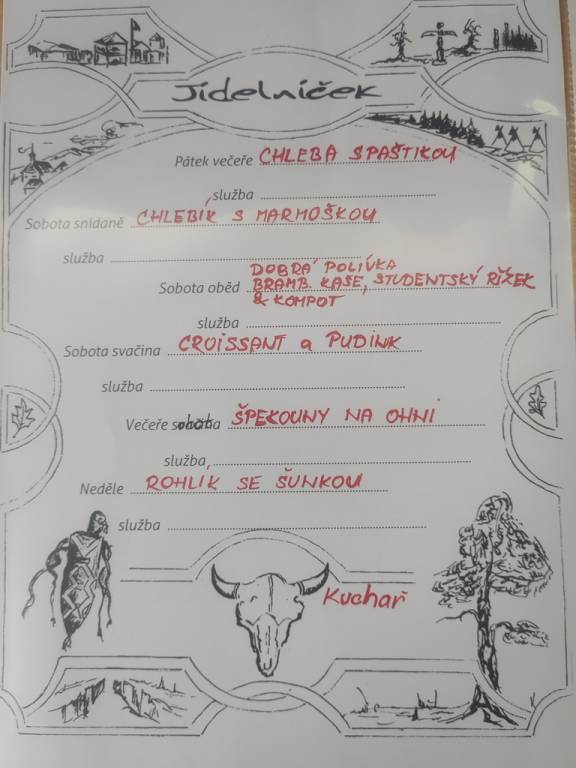 Jídelníček
Pátek večeře CHLEBA S PAŠTIKOU
služba
Sobota snídaně CHLEBÍK S MARMOŠKOU
služba
DOBRÁ POLÍVKA
Sobota oběd BRAMB. KAŠE, STUDENTSKÝ ŘÍZEK
& KOMPOT
služba
Sobota svačina CROISSANT a PUDINK
služba
Večeře sobota ŠPEKOUNY NA OHNI
služba
Neděle ROHLÍK SE ŠUNKOU
služba
Kuchař